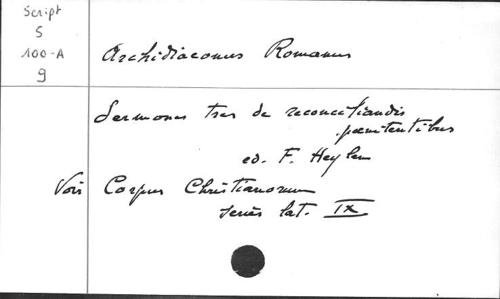 Script
5
100-A
9
Archidiaconus Romanus
Sermones tres de reconciliandis
paenitentibus
ed. F. Heylen
Voir Corpus Christianorum
series lat. IX